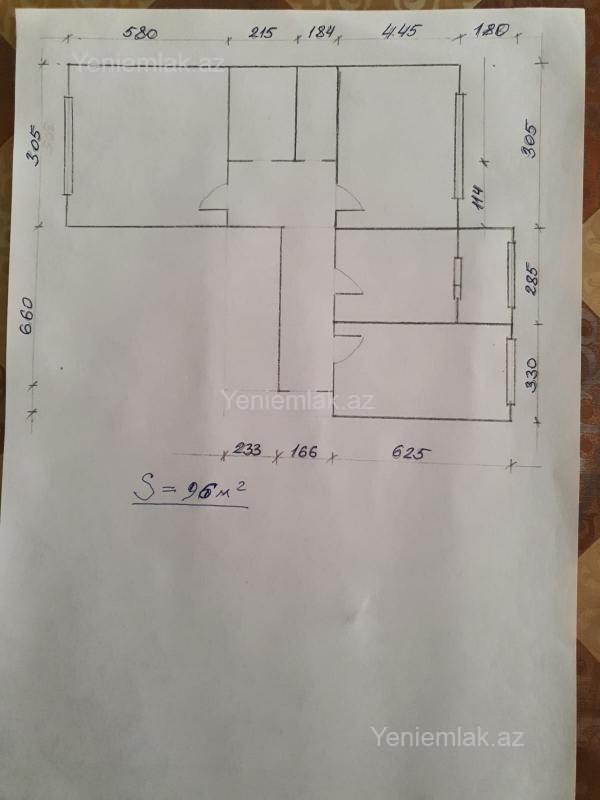 580 215 184 4.45 180
Yeniemlak.az
305
305
114
285
660
330
Yeniemlak.az
233 166 625
S = 96 м²
Yeniemlak.az